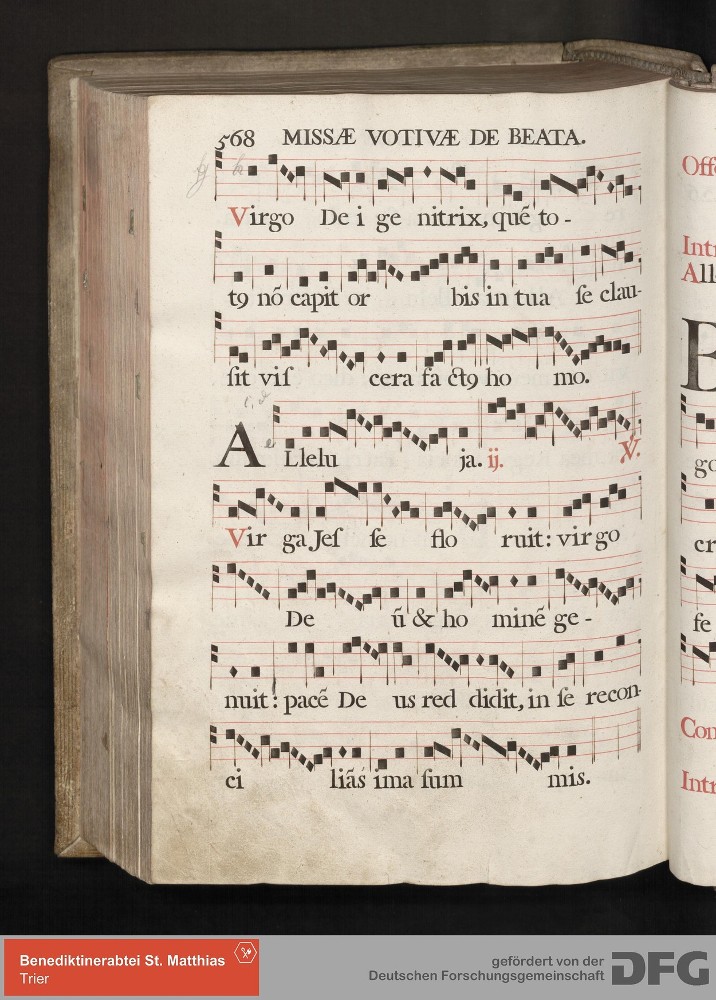 568 MISSÆ VOTIVÆ DE BEATA.
Virgo De i ge nitrix, quē to -
t9 nō capit or bis in tua ſe clau-
ſit viſ cera fa ct9 ho mo.
ALlelu ja. ij. V.
Vir ga Jeſ ſe flo ruit: vir go
De ū & ho minē ge -
nuit: pacē De us red didit, in ſe recon-
ci liās ima ſum mis.
Off
Intr
All
go
cr
fe
Com
Intr
Benediktinerabtei St. Matthias
Trier
gefördert von der
Deutschen Forschungsgemeinschaft DFG